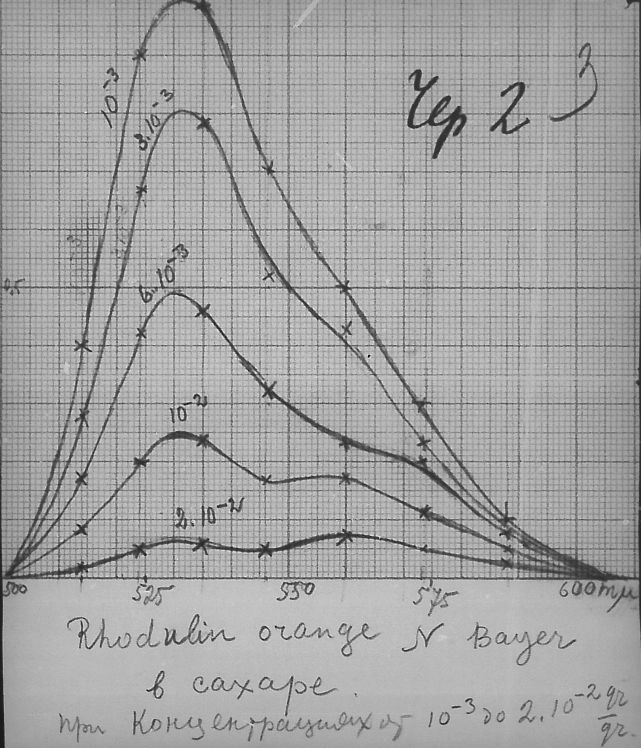 Чер 2
10⁻³
3.10⁻³
0,5
6.10⁻³
10⁻²
2.10⁻²
500 525 550 575 600 mμ
Rhodulin orange N Bayer
в сахаре.
при Концентрациях от 10⁻³ до 2.10⁻² gr/gr.